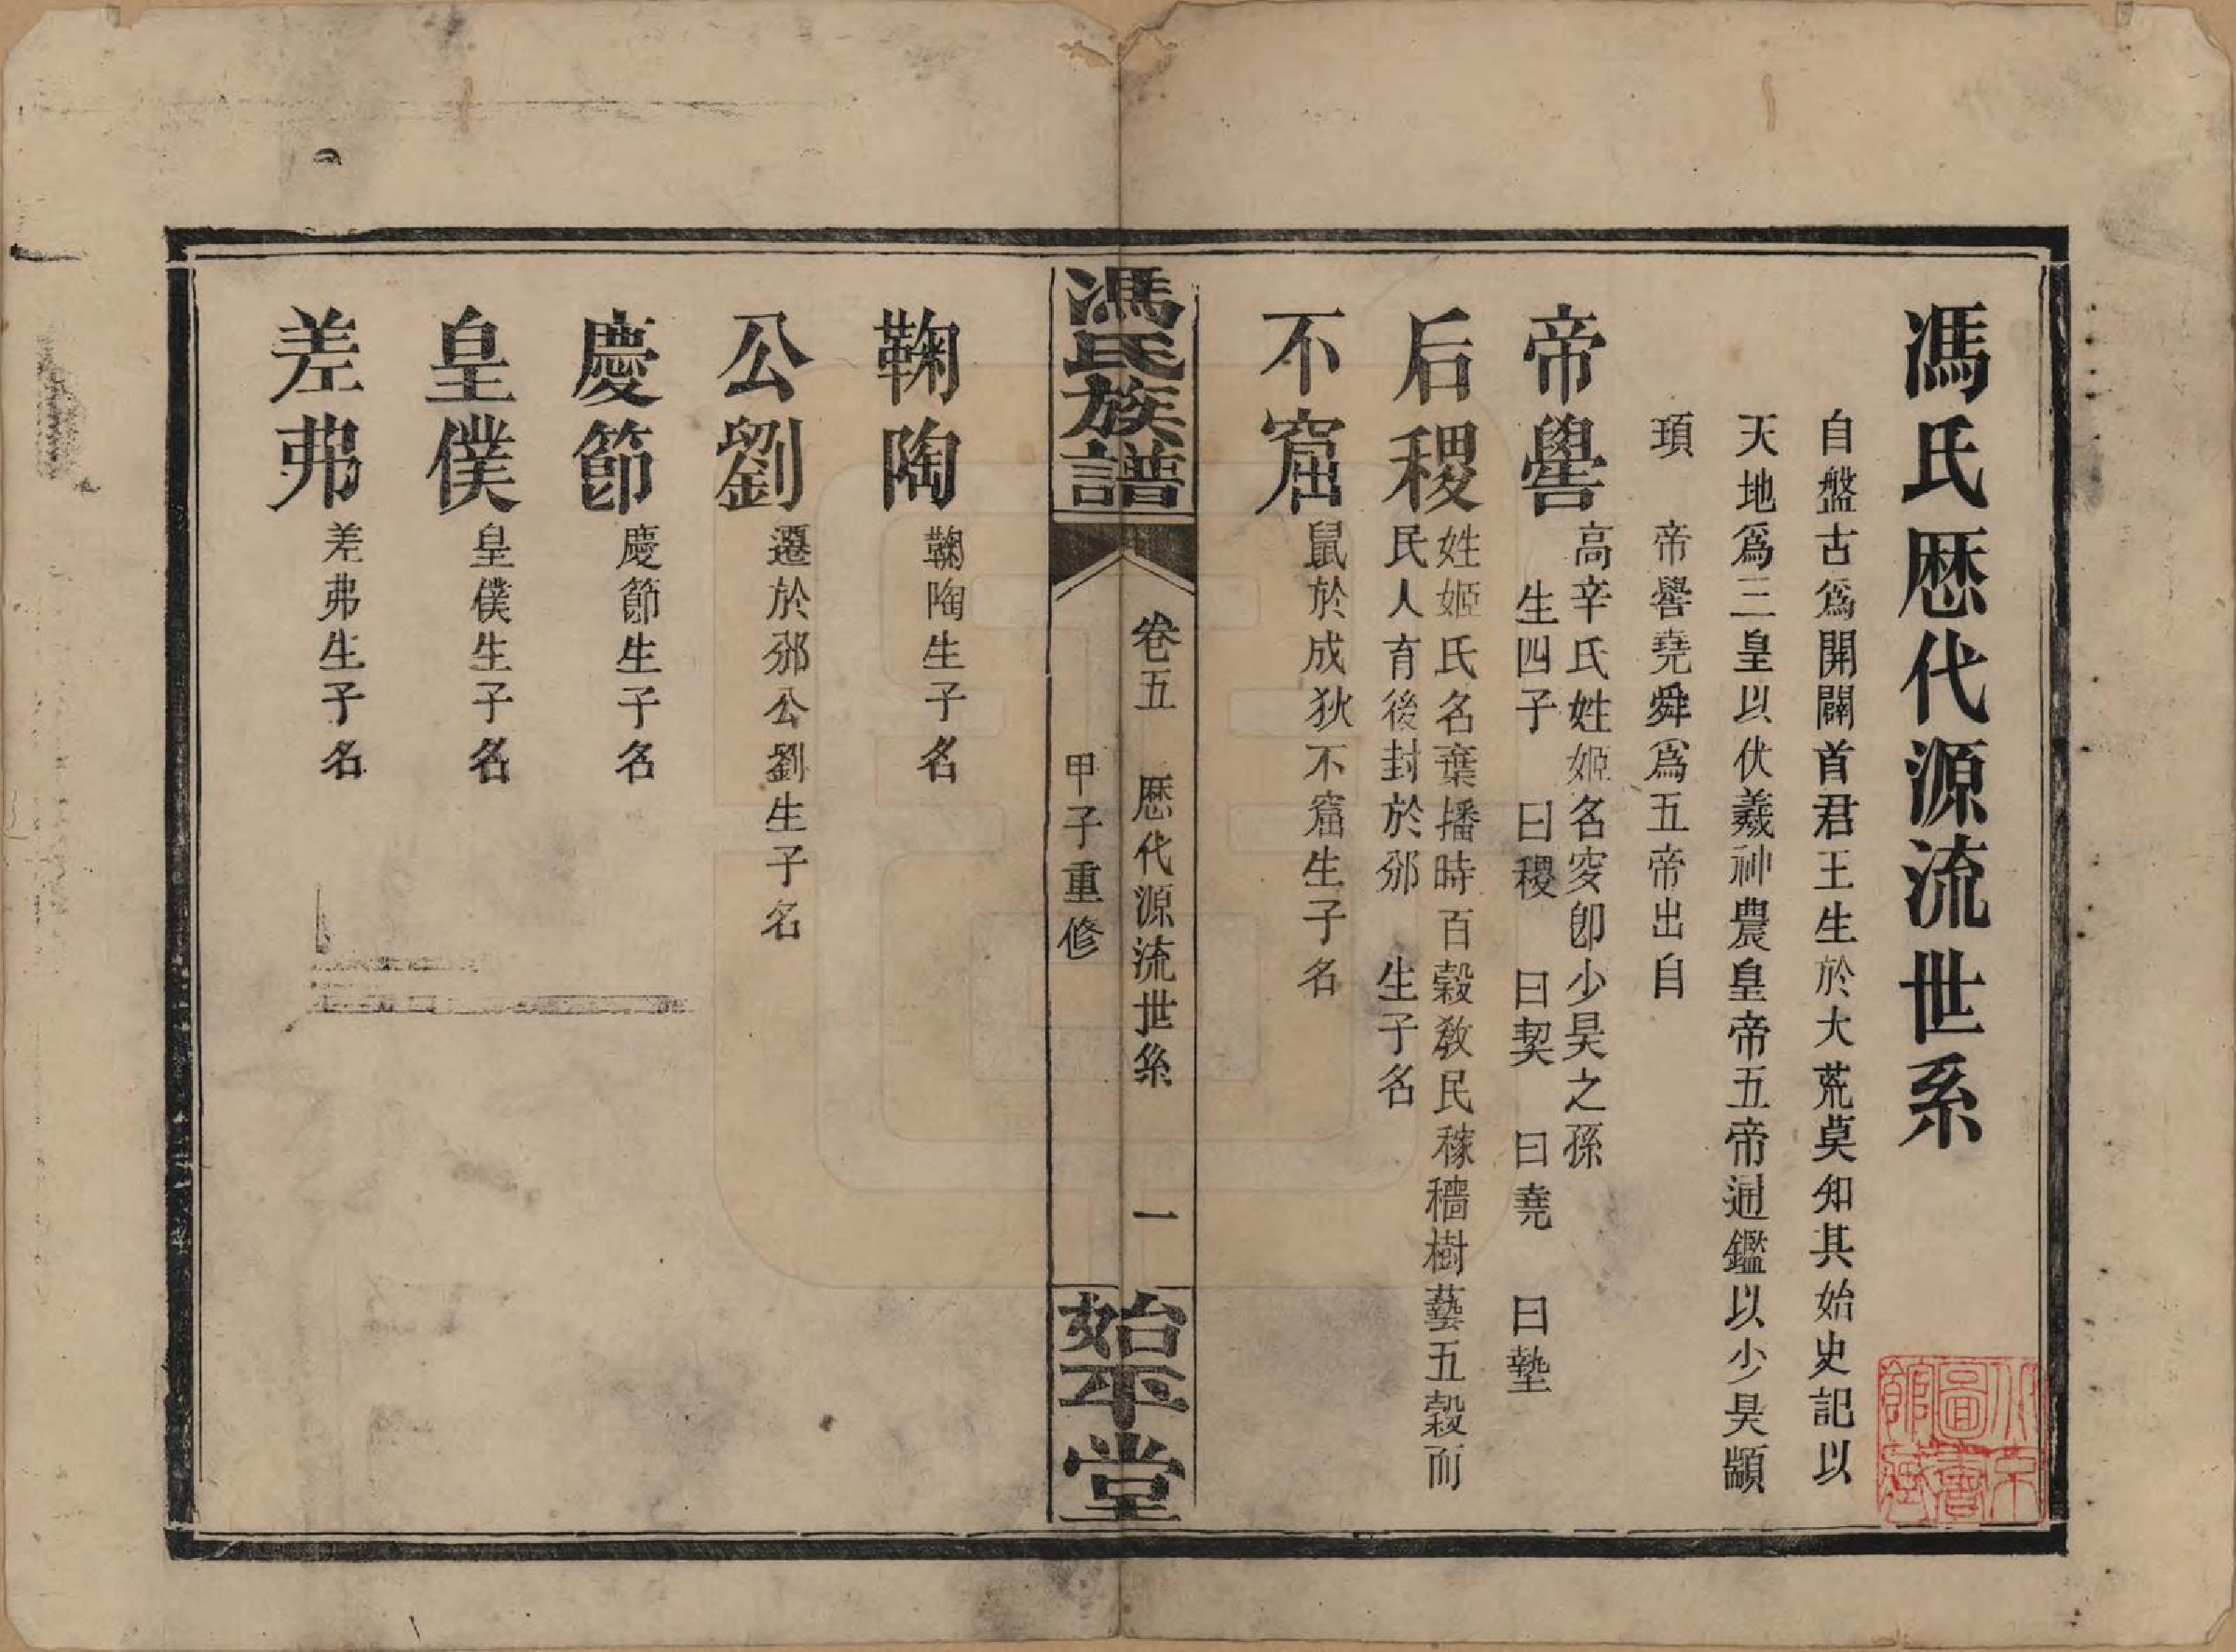 馮氏厯代源流世系
自盤古爲開闢首君王生於大荒莫知其始史記以
天地爲三皇以伏羲神農皇帝五帝通鑑以少昊顓
頊　帝嚳堯舜爲五帝出自
帝嚳
高辛氏姓姬名夋卽少昊之孫
生四子　曰稷　曰契　曰堯　曰墊
后稷
姓姬氏名棄播時百榖教民稼穡樹藝五榖而
民人育後封於邠　生子名
不窟
鼠於成狄不窟生子名
馮氏族譜
卷五　厯代源流世系　一
甲子重修
始平堂
鞠陶
鞠陶生子名
公劉
遷於邠公劉生子名
慶節
慶節生子名
皇僕
皇僕生子名
差弗
差弗生子名